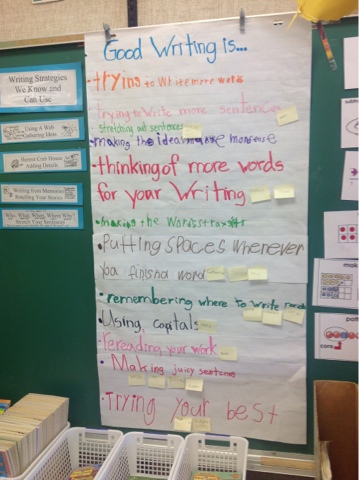 Good Writing is...
• trying to Write more words
trying to Write more sentences
• stretching out sentences
• making the idea make more sense
• thinking of more words
for your Writing
• making the words
• Putting spaces whenever
you finish a word
• remembering where to write
• Using capitals
• rereading your work
• Making juicy sentence
• Trying your best
Writing Strategies
We Know and
Can Use
Using A Web
Gathering Ideas
Hermit Crab House
Adding Details
Writing from Memories
Retelling Your Stories
Who, What, When, Where, Why?
Stretch Your Sentences